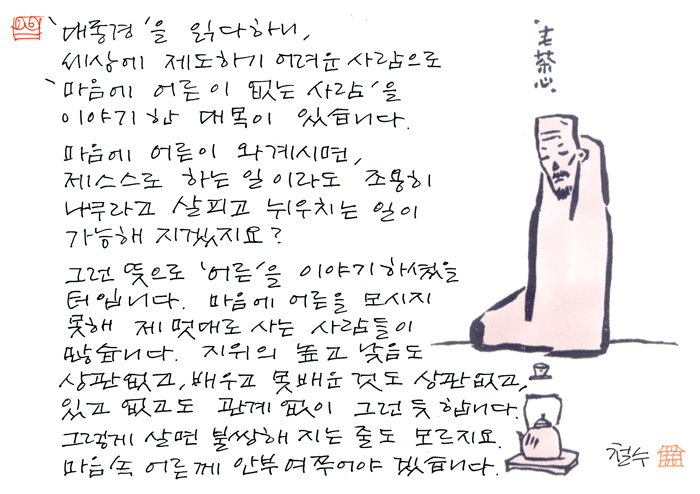 '대종경'을 읽다하니,
세상에 제도하기 어려운 사람으로
'마음에 어른이 없는 사람'을
이야기 한 대목이 있습니다.
마음에 어른이 와계시면,
제스스로 하는 일이라도 조용히
나무라고 살피고 뉘우치는 일이
가능해 지겠지요?
그런 뜻으로 '어른'을 이야기하셨을
터입니다. 마음에 어른을 모시지
못해 제 멋대로 사는 사람들이
많습니다. 지위의 높고 낮음도
상관없고, 배우고 못배운 것도 상관없고,
있고 없고도 관계 없이 그런 듯 합니다.
그렇게 살면 불쌍해 지는 줄도 모르지요.
마음속 어른께 안부 여쭈어야 겠습니다.
茶心
철수